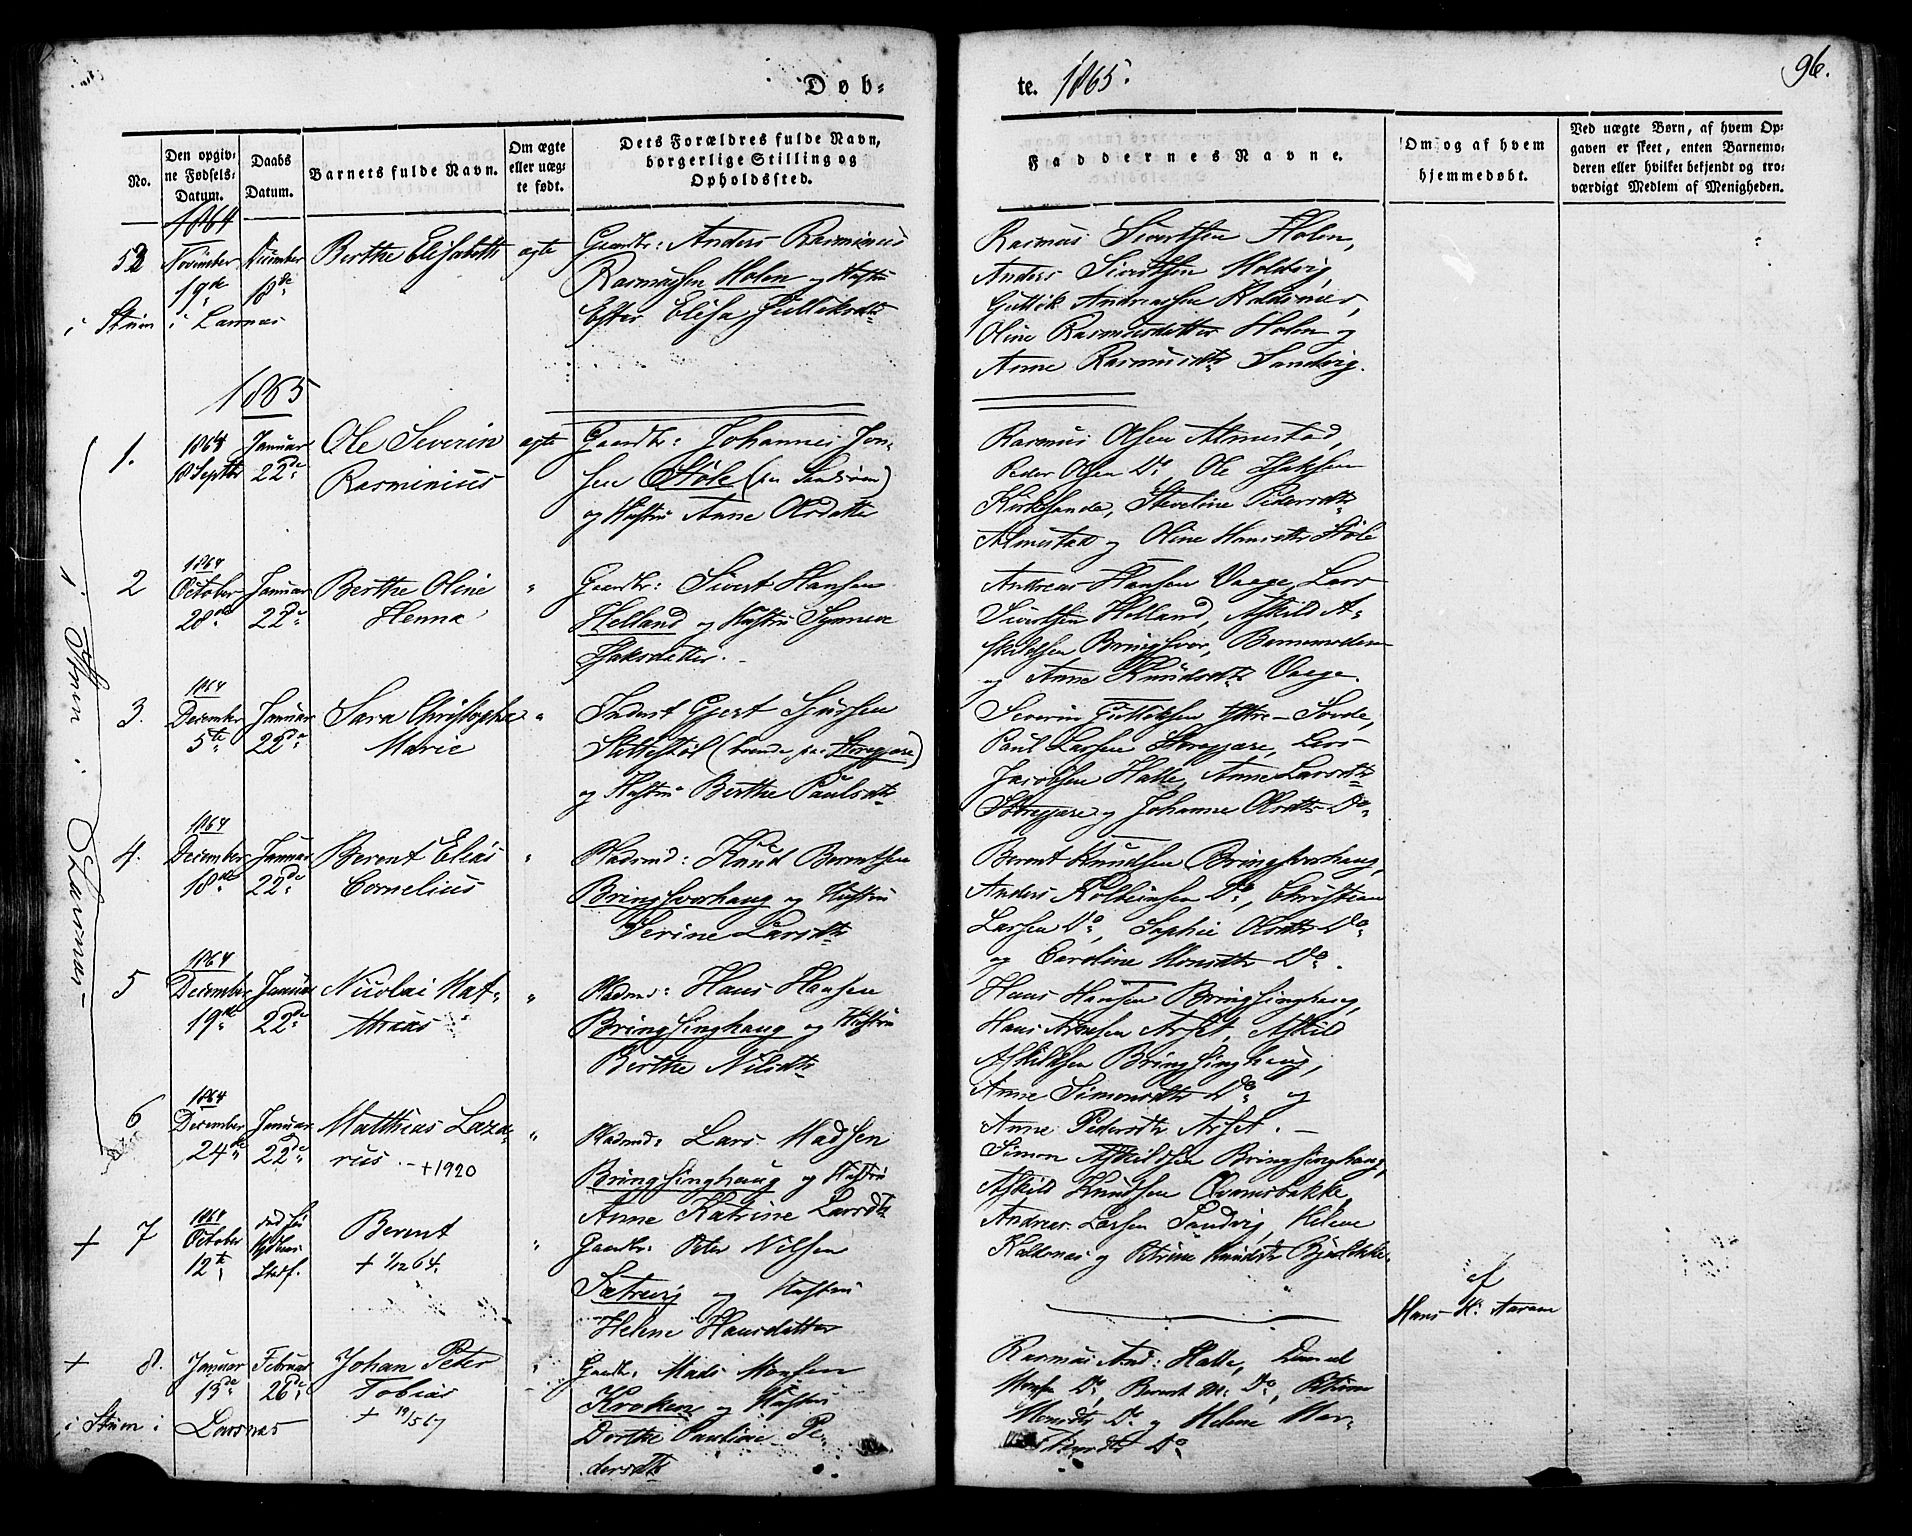 Døb-
te. 1865.
96.
No.
Den opgiv-
ne Fødsels-
Datum.
Daabs
Datum.
Barnets fulde Navn.
Om ægte
eller uæg-
te født.
Dets Forældres fulde Navn,
borgerlige Stilling og
Opholdssted.
Faddernes Navne.
Om og af hvem
hjemmedøbt.
Ved uægte Børn, af hvem Op-
gaven er skeet, enten Barnemo-
deren eller hvilket bekjendt og tro-
værdigt Medlem af Menigheden.
1864
52
November
19de
December
18de
i Stuen i Larsnæs
Berthe Elisabeth
ægte
Gaardbr: Anders Rasminus
Rasmussen Holen og Hustru
Ester Elisa Guttoksdtr
Rasmus Sivertsen Holen,
Anders Sivertsen Moldvig,
Guttok Andreassen Koldsnæs,
Oline Rasmusdatter Holen og
Anne Rasmusdtr Sandvig.
1865
i Stuen i Larsnæs
1.
1864
18 Septbr
Januar
22de
Ole Severin
Rasminius
ægte
Gaardbr: Johannes Jon-
sen Støle (paa Sandøen)
og Hustru Anne Olsdatter
Rasmus Olsen Almestad,
Peder Olsen Do, Ole Isaksen
Kirkesande, Steveline Pedersdtr
Almestad og Oline Hansdtr Støle
2
1864
October
28de
Januar
22de
Berthe Oline
Henna
"
Gaardbr: Sivert Hansen
Helland og Hustru Synneve
Isaksdatter.
Andreas Hansen Vaage, Lars
Sivertsen Helland, Askild A-
skildsen Bringsvor, Barnemoderen
og Anne Knudsdtr Vaage.
3.
1864
December
5te
Januar
22de
Sara Christophea
Marie
"
Inderst Gjert Sjursen
Slettestøl (boende paa Storegjære)
og Hustru Berthe Paulsdtr
Severin Guttoksen Ytre-Sørde,
Paul Larsen Storegjære, Lars
Jacobsen Halle, Anne Larsdtr
Storegjære og Johanne Olsdtr Do
4.
1864
December
18de
Januar
22de
Berent Elias
Cornelius
"
Pladsmd: Knud Berentsen
Bringsvorhaug og Hustru
Serine Larsdtr
Berent Knudsen Bringsvorhaug,
Anders Kolbeinsen Do, Christian
Larsen Do, Sophie Olsdtr Do
og Caroline Monsdtr Do.
5
1864
December
19de
Januar
22de
Nicolai Mat-
thias
"
Pladsmd: Hans Hansen
Bringsinghaug og Hustru
Berthe Nilsdtr
Hans Hansen Bringsinghaug,
Hans Arnesen Arset, Askild
Askildsen Bringsinghaug,
Anne Simonsdtr Do og
Anne Pedersdtr Arset.
6
1864
December
24de
Januar
22de
Matthias Laza-
rus. + 1920
"
Pladsmd: Lars Madsen
Bringsinghaug og Hustru
Anne Katrine Larsdtr
Simon Askildsen Bringsinghaug,
Askild Knudsen Qvamsbakke,
Andreas Larsen Sandvig, Helene
Koldsnæs og Petrine Knudsdtr
+ 7
1864
October
12te
Berent
+ 1/12 64.
"
Gaardbr: Peter Nilsen
Sætrevig og Hustru
Helene Hansdatter
af
Hans K. Aaram
+ 8.
Januar
13de
Februar
26de
Johan Peter
Tobias
+ 19/5 67
"
Gaardbr: Mads Monsen
Kroken og Hustru
Dorthe Pauline Pe-
dersdtr
i Stuen i Larsnæs
Rasmus And: Halle, Daniel
Monsen Do, Berent M. Do,
Monsdtr Do og Helene
Do